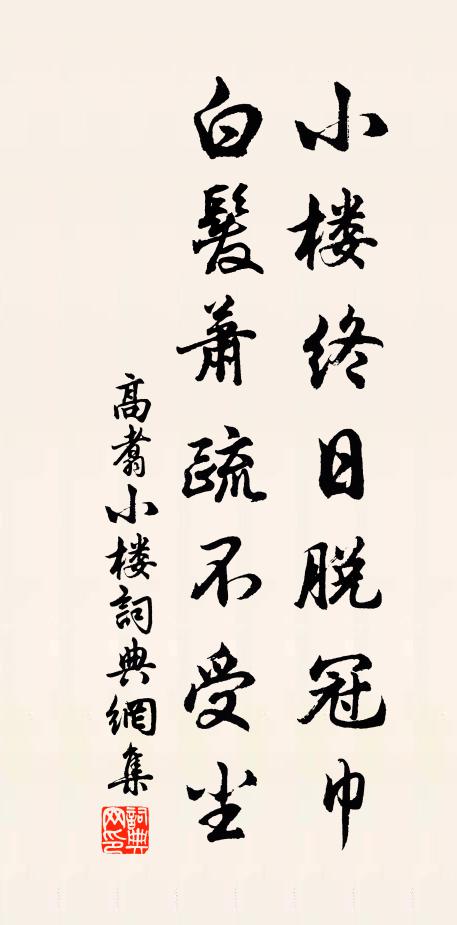 小楼终日脱冠巾
白髮萧疏不受尘
高翥小楼詞典網集
詞典网印